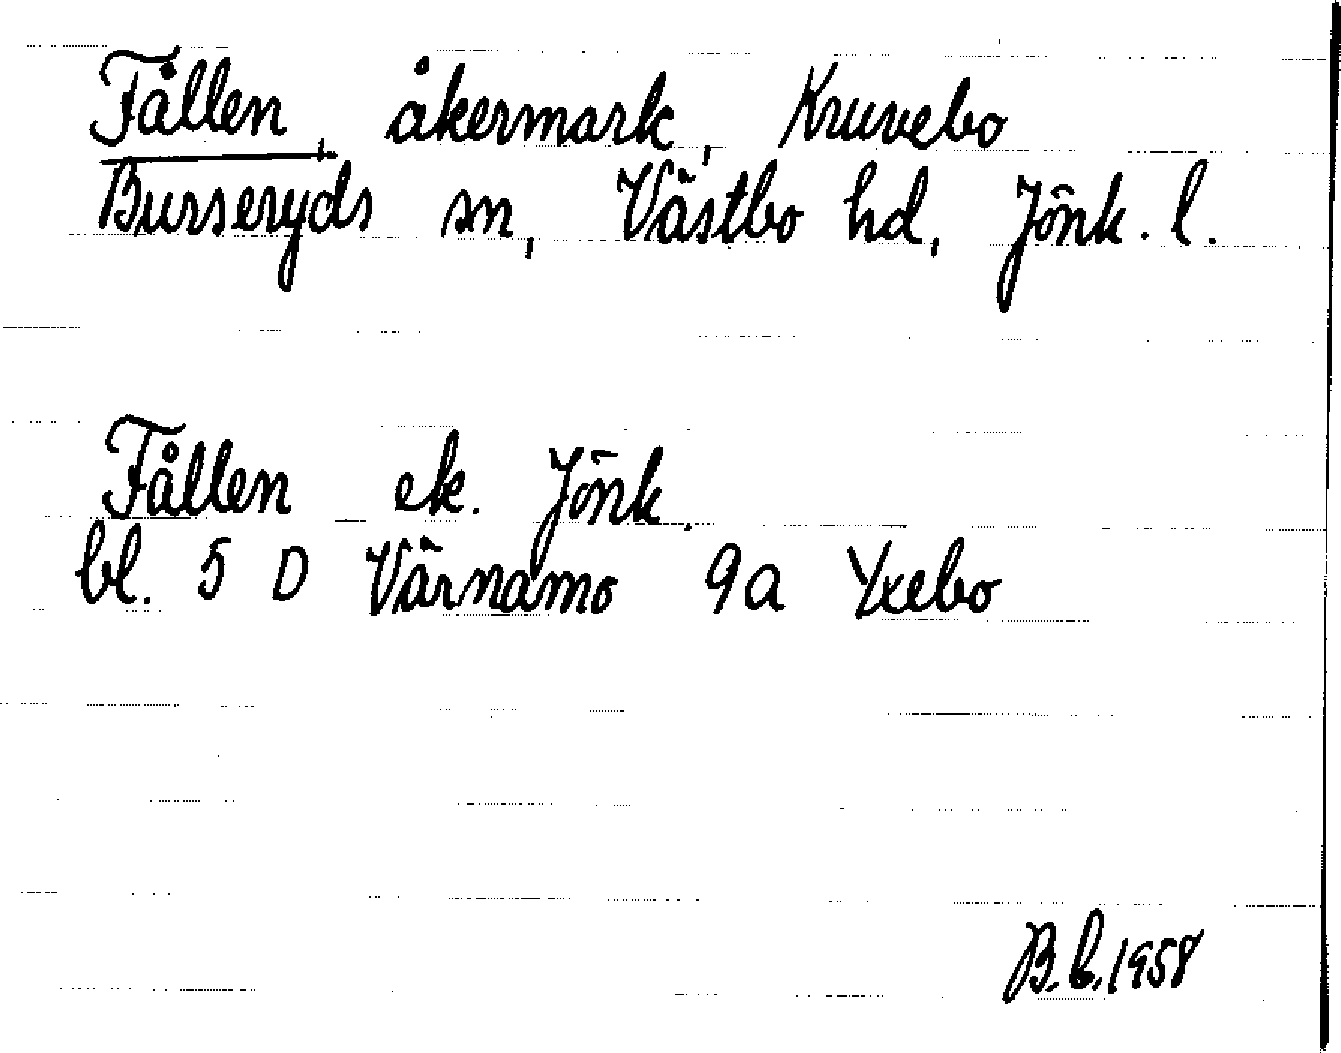 Fållen, åkermark, Kruvebo
Burseryds sn, Västbo hd, Jönk. l.
Fållen ek. Jönk.
bl. 5 D Värnamo 9a Yxebo
B.L. 1958